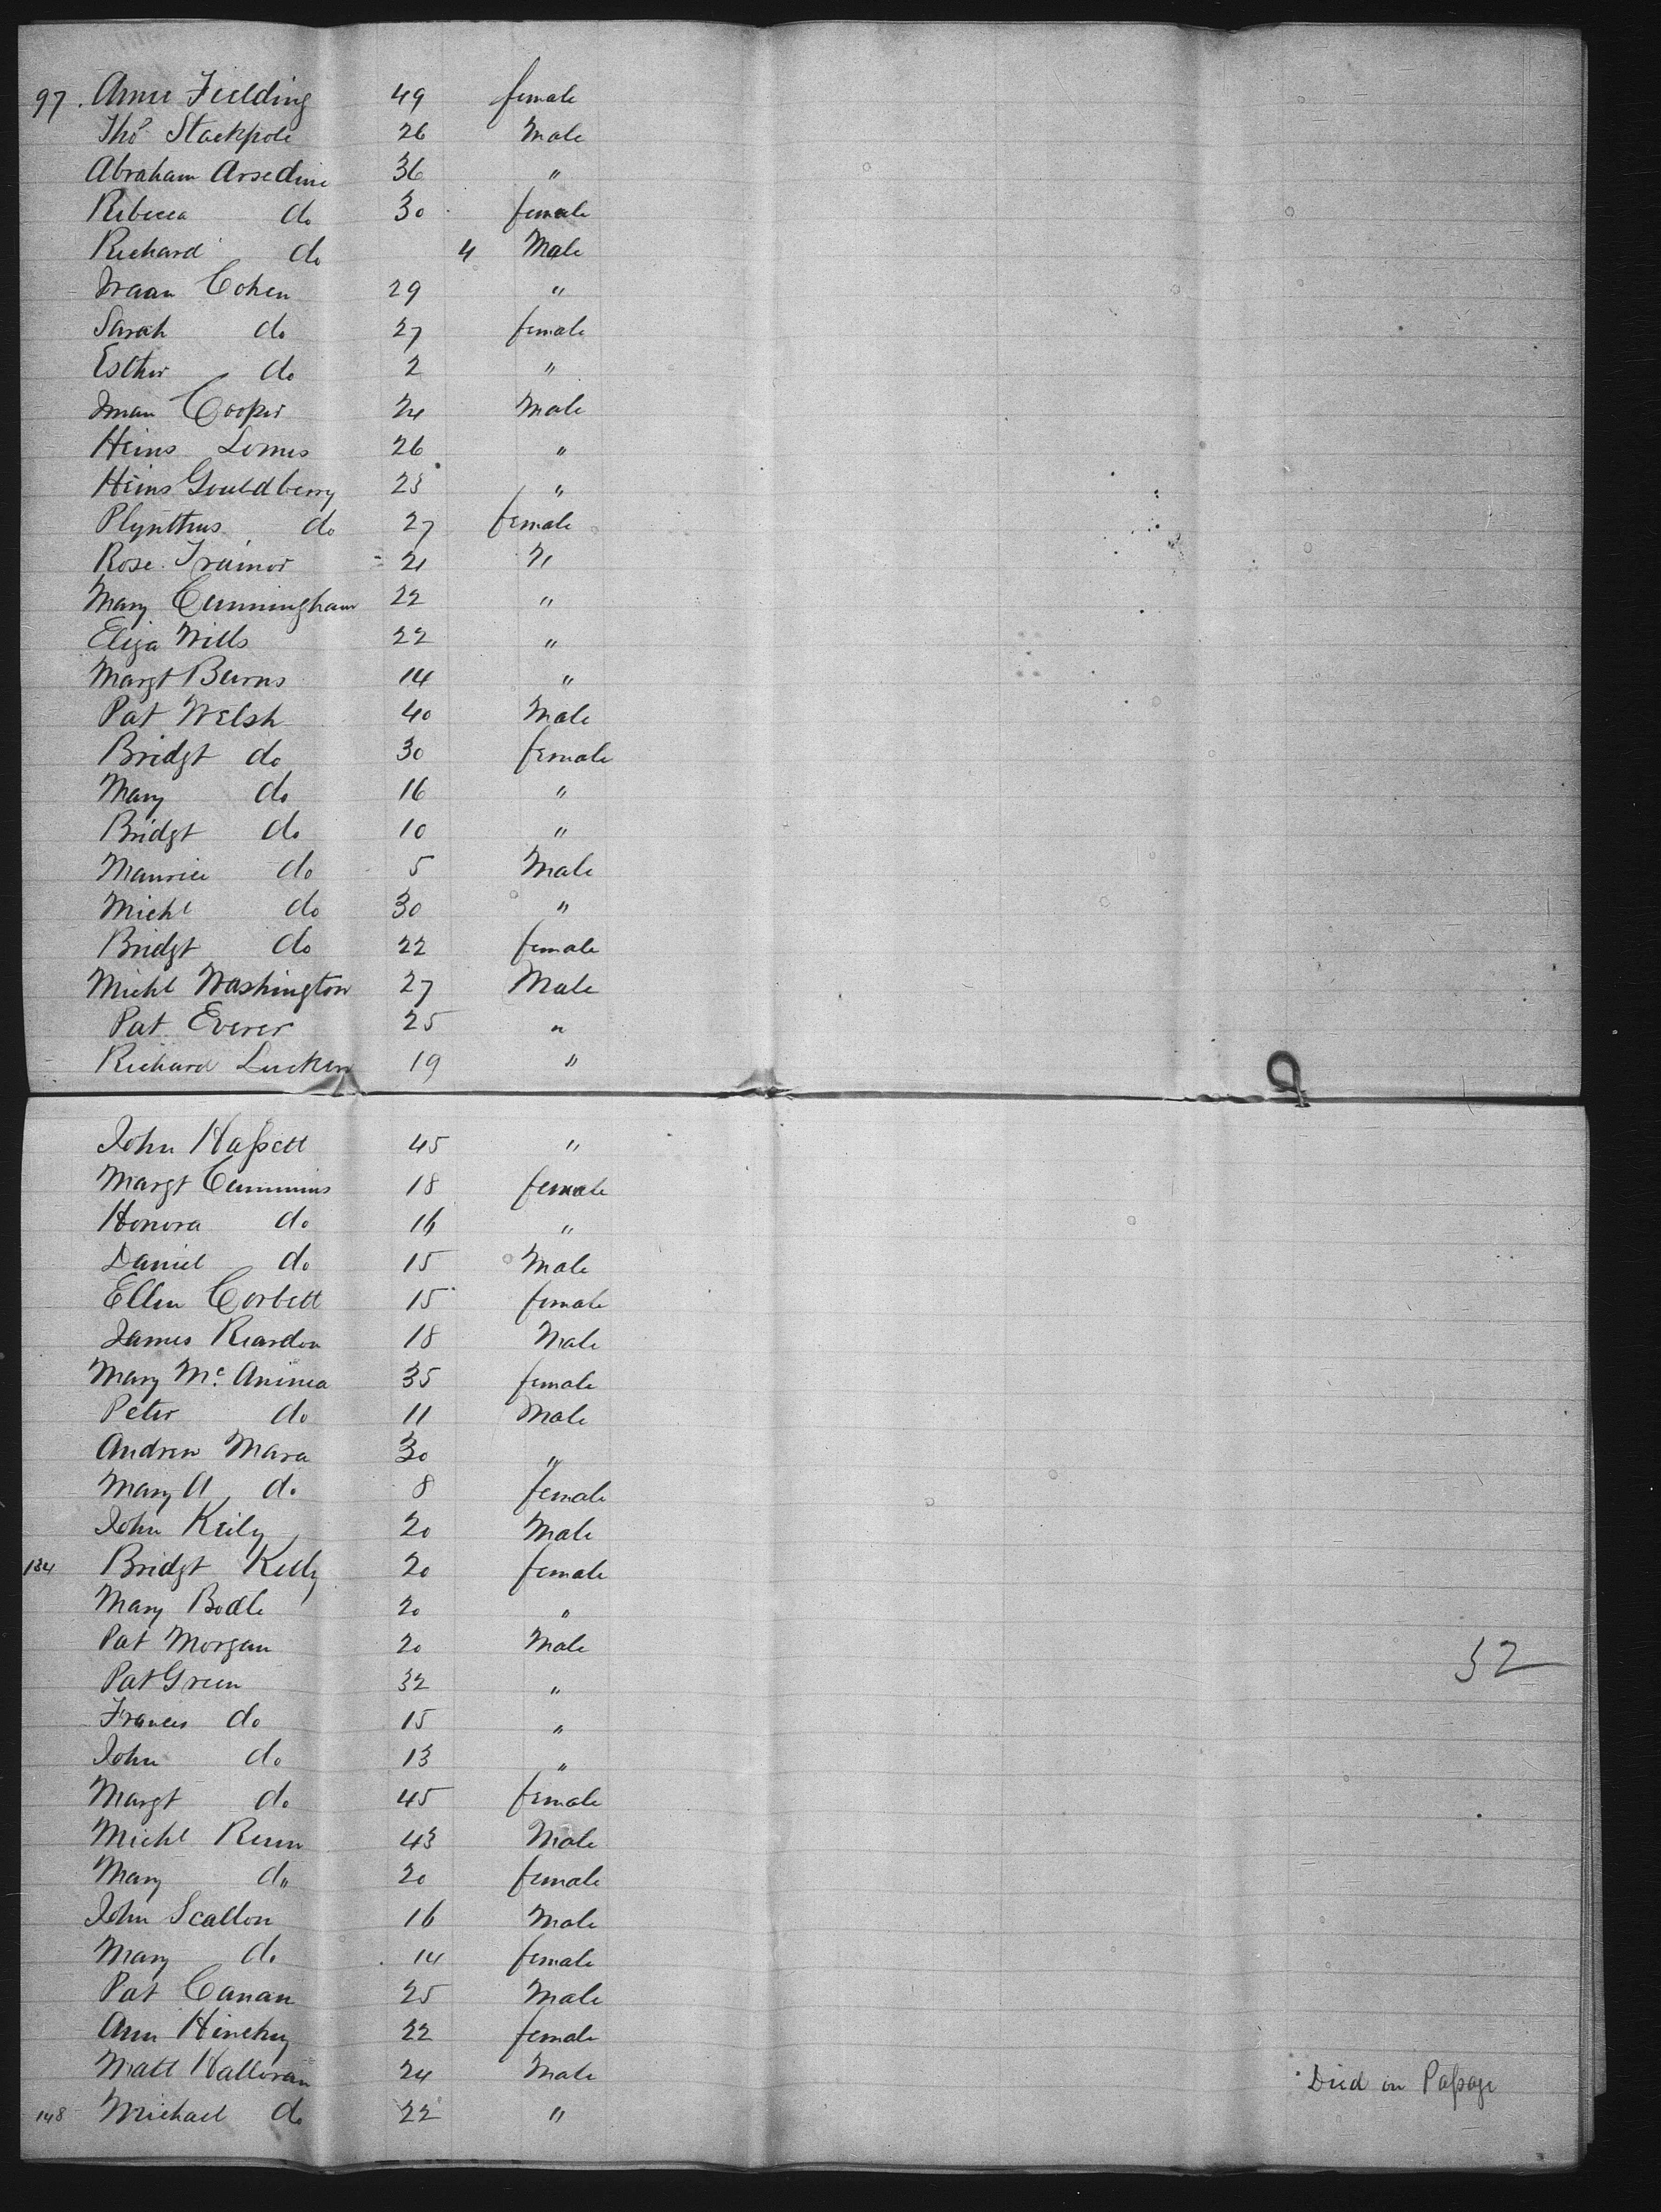 97. Anne Fielding 49 female
Thos Stackpole 26 Male
Abraham Arsedine 36 "
Rebecca do 30 female
Richard do 4 Male
Cohen 29 "
Sarah do 27 female
Esther do 2 "
Cooper 24 Male
Heins Lomes 26 "
Heins Gouldberry 23 "
Plynthus do 27 female
Rose Trainor 21 "
Mary Cunningham 22 "
Eliza Wills 22 "
Margt Burns 14 "
Pat Welsh 40 Male
Bridgt do 30 female
Mary do 16 "
Bridgt do 10 "
Maurice do 5 Male
Michl do 30 "
Bridgt do 22 female
Michl Washington 27 Male
Pat Everer 25 "
Richard Lucken 19 "
John Hassett 45 "
Margt Cummins 18 female
Honora do 16 "
Daniel do 15 Male
Ellen Corbett 15 female
James Reardon 18 Male
Mary Mc. Aninea 35 female
Peter do 11 Male
Andrew Mara 30 "
Mary A do 8 female
John Keily 20 Male
134 Bridgt Kelly 20 female
Mary Bodle 20 "
Pat Morgan 20 Male
52
Pat Green 32 "
Frances do 15 "
John do 13 "
Margt do 45 female
Michl 43 Male
Mary do 20 female
John Scallon 16 Male
Mary do 14 female
Pat Canan 25 Male
Ann Hinchy 22 female
Matt Halloran 24 Male Died on Passage
148 Michael do 22 "